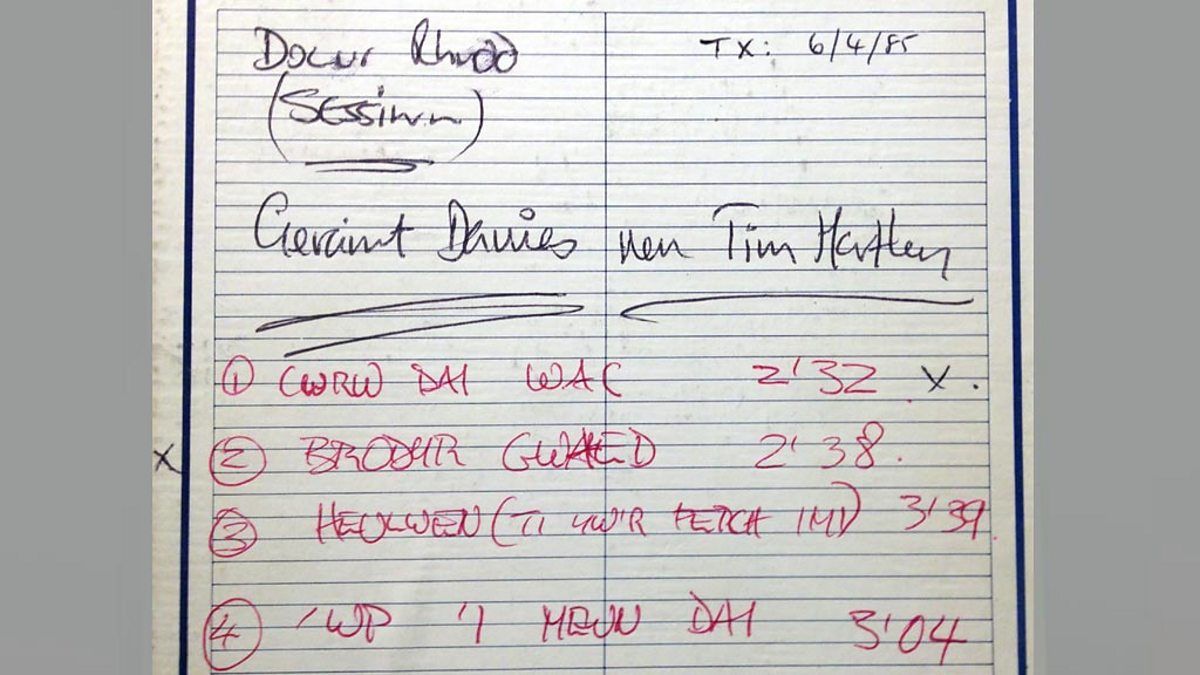 TX: 6/4/85
(SESSiwn)
Geraint Davies neu Tim Hartley
① CWRW DAI WAC 2'32 X.
X ② BRODYR GWAED 2'38.
③ HEULWEN (TI YW'R FERCH IMI) 3'39
④ 'WP 'I MEWN DAI 3'04